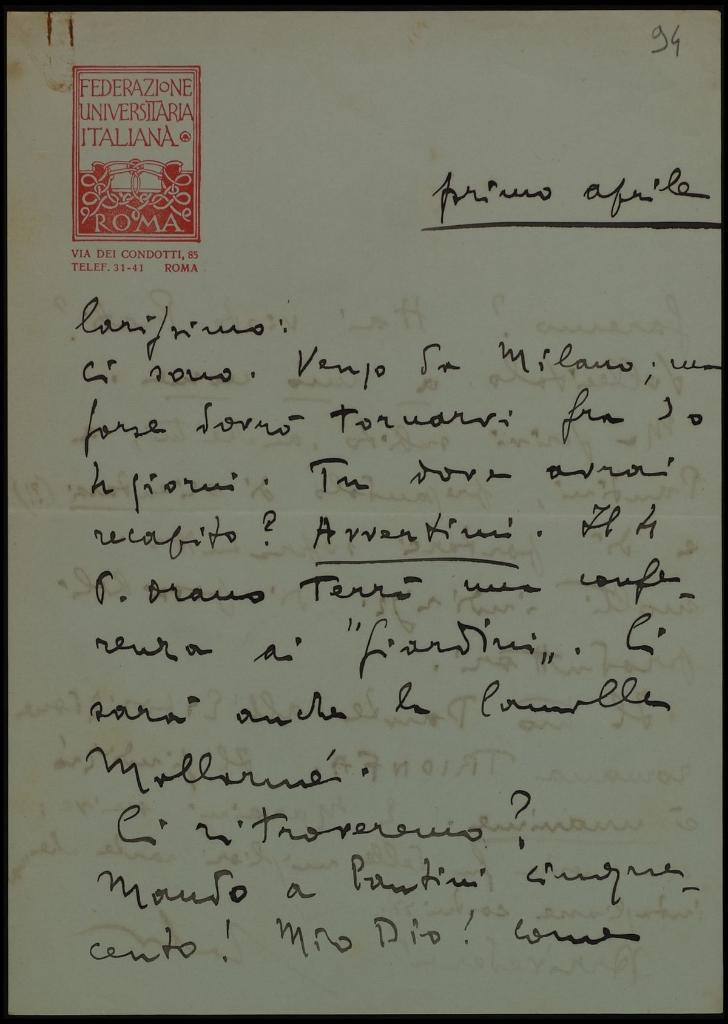 94
FEDERAZIONE
UNIVERSITARIA
ITALIANA
ROMA
VIA DEI CONDOTTI, 85
TELEF. 31-41 ROMA
primo aprile
Carissimo:
ci sono. Vengo da Milano; ma
forse dovrò tornarvi fra 3 o
4 giorni. Tu dove avrai
recapito? Avvertimi. Il 4
P. Orano terrà una confe-
renza ai "Giardini". Ci
sarà anche la Camilla
Mallarmé.
Ci ritroveremo?
Mando a Pantini cinque-
cento! Mio Dio! come